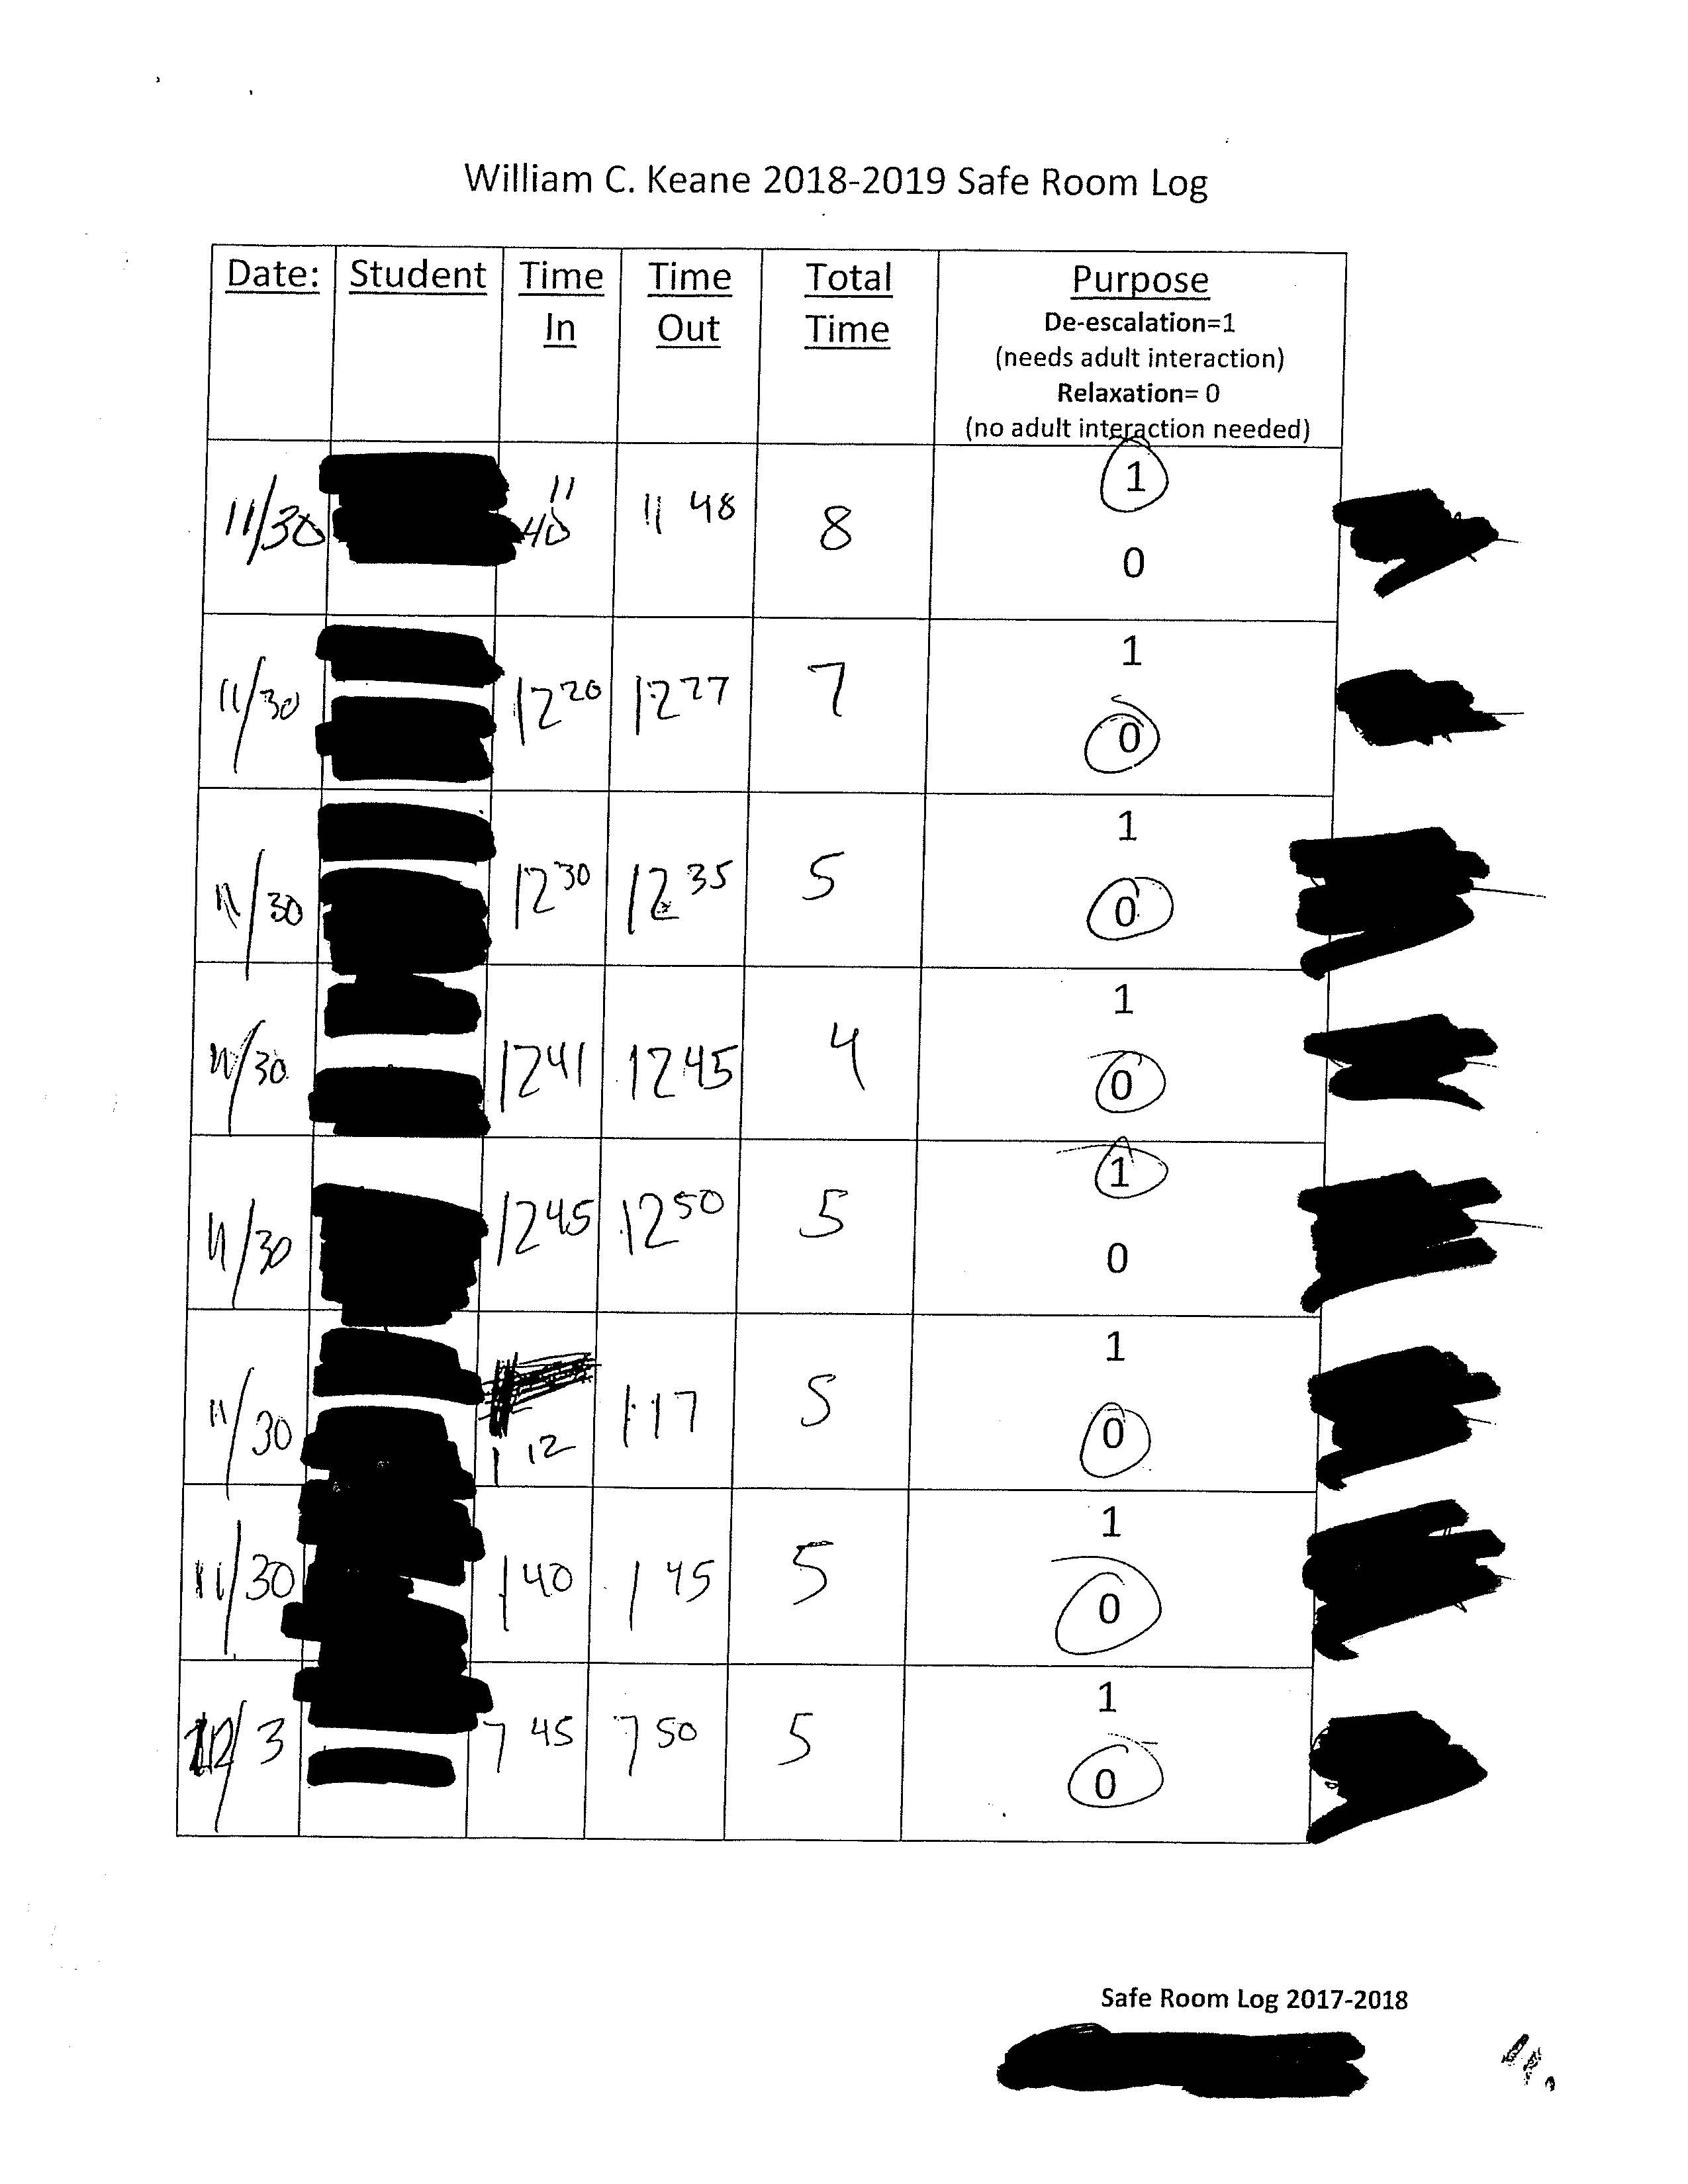 William C. Keane 2018-2019 Safe Room Log
Date: Student Time In Time Out Total Time Purpose
De-escalation=1
(needs adult interaction)
Relaxation= 0
(no adult interaction needed)
11/30 11 40 11 48 8 1 0
11/30 12 20 12 27 7 1 0
11/30 12 30 12 35 5 1 0
11/30 12 41 12 45 4 1 0
11/30 12 45 12 50 5 1 0
11/30 1 12 1 17 5 1 0
11/30 1 40 1 45 5 1 0
12/3 7 45 7 50 5 1 0
Safe Room Log 2017-2018